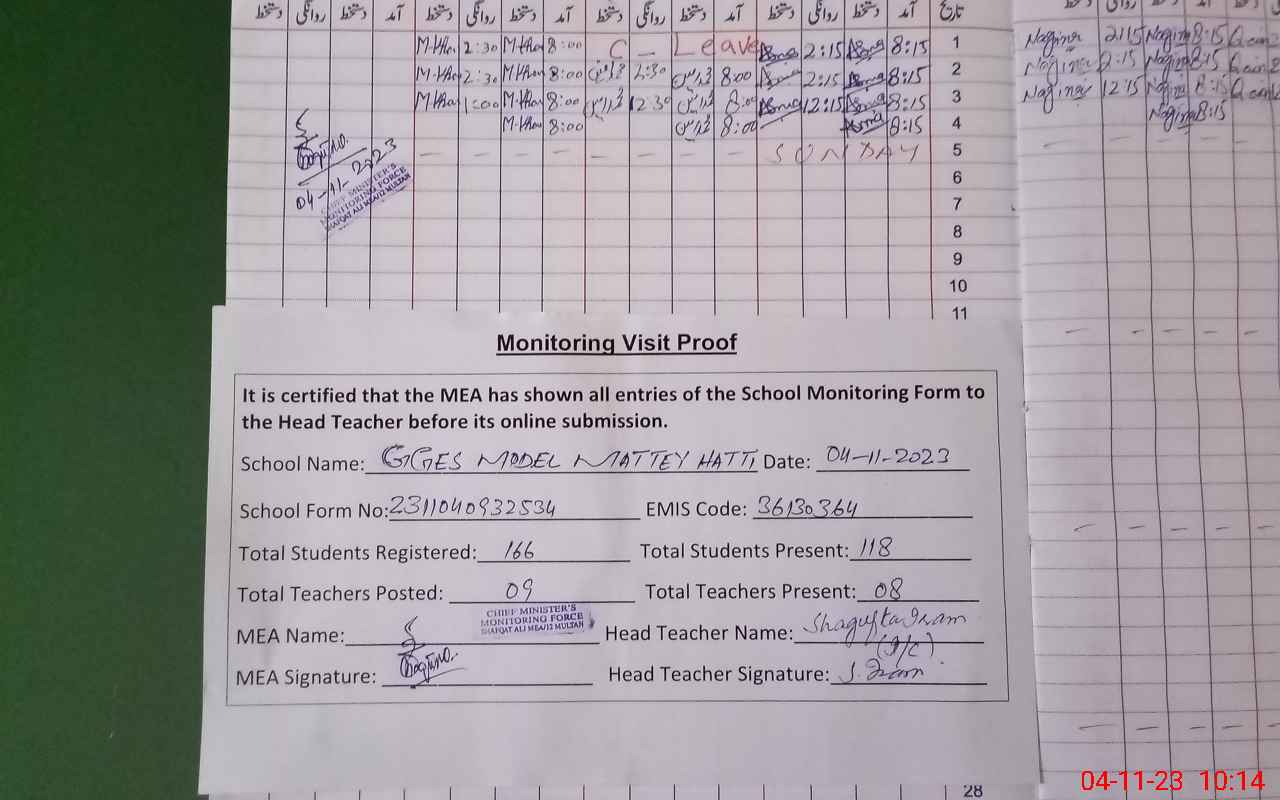 دستخط روانگی دستخط آمد دستخط روانگی دستخط آمد دستخط روانگی دستخط آمد دستخط روانگی دستخط آمد تاریخ
M-Kha. 2:30 M-Kha 8:00 C — Leave Asma 2:15 Asma 8:15 1
M-Kha 2:30 M-Kha 8:00 2:30 8:00 Asma 2:15 Asma 8:15 2
M-Kha 1:00 M-Kha 8:00 12:30 8:00 Asma 12:15 Asma 8:15 3
M-Kha 8:00 8:00 Asma 8:15 4
SUNDAY 5
6
7
8
9
10
11
04-11-2023
CHIEF MINISTER'S
MONITORING FORCE
SHAFQAT ALI MEA/12 MULTAN
Nagina 2:15 Nagina 8:15
Nagina 2:15 Nagina 8:15
Nagina 12:15 Nagina 8:15
Nagina 8:15
Monitoring Visit Proof
It is certified that the MEA has shown all entries of the School Monitoring Form to
the Head Teacher before its online submission.
School Name: GGES MODEL MATTEY HATTI Date: 04-11-2023
School Form No: 2311040932534 EMIS Code: 36130364
Total Students Registered: 166 Total Students Present: 118
Total Teachers Posted: 09 Total Teachers Present: 08
CHIEF MINISTER'S
MONITORING FORCE
SHAFQAT ALI MEA/12 MULTAN
MEA Name: Head Teacher Name: Shagufta Iram
(I/C)
MEA Signature: Head Teacher Signature: S. Iram
28
04-11-23 10:14